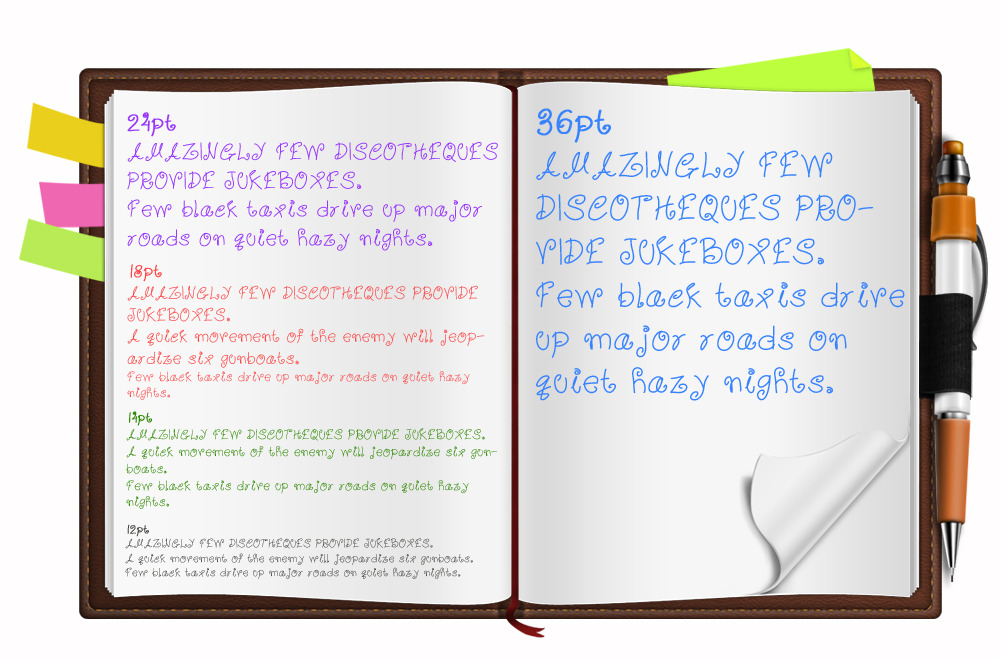 24pt
AMAZINGLY FEW DISCOTHEQUES
PROVIDE JUKEBOXES.
Few black taxis drive up major
roads on quiet hazy nights.
18pt
AMAZINGLY FEW DISCOTHEQUES PROVIDE
JUKEBOXES.
A quick movement of the enemy will jeop-
ardize six gunboats.
Few black taxis drive up major roads on quiet hazy
nights.
14pt
AMAZINGLY FEW DISCOTHEQUES PROVIDE JUKEBOXES.
A quick movement of the enemy will jeopardize six gun-
boats.
Few black taxis drive up major roads on quiet hazy
nights.
12pt
AMAZINGLY FEW DISCOTHEQUES PROVIDE JUKEBOXES.
A quick movement of the enemy will jeopardize six gunboats.
Few black taxis drive up major roads on quiet hazy nights.
36pt
AMAZINGLY FEW
DISCOTHEQUES PRO-
VIDE JUKEBOXES.
Few black taxis drive
up major roads on
quiet hazy nights.